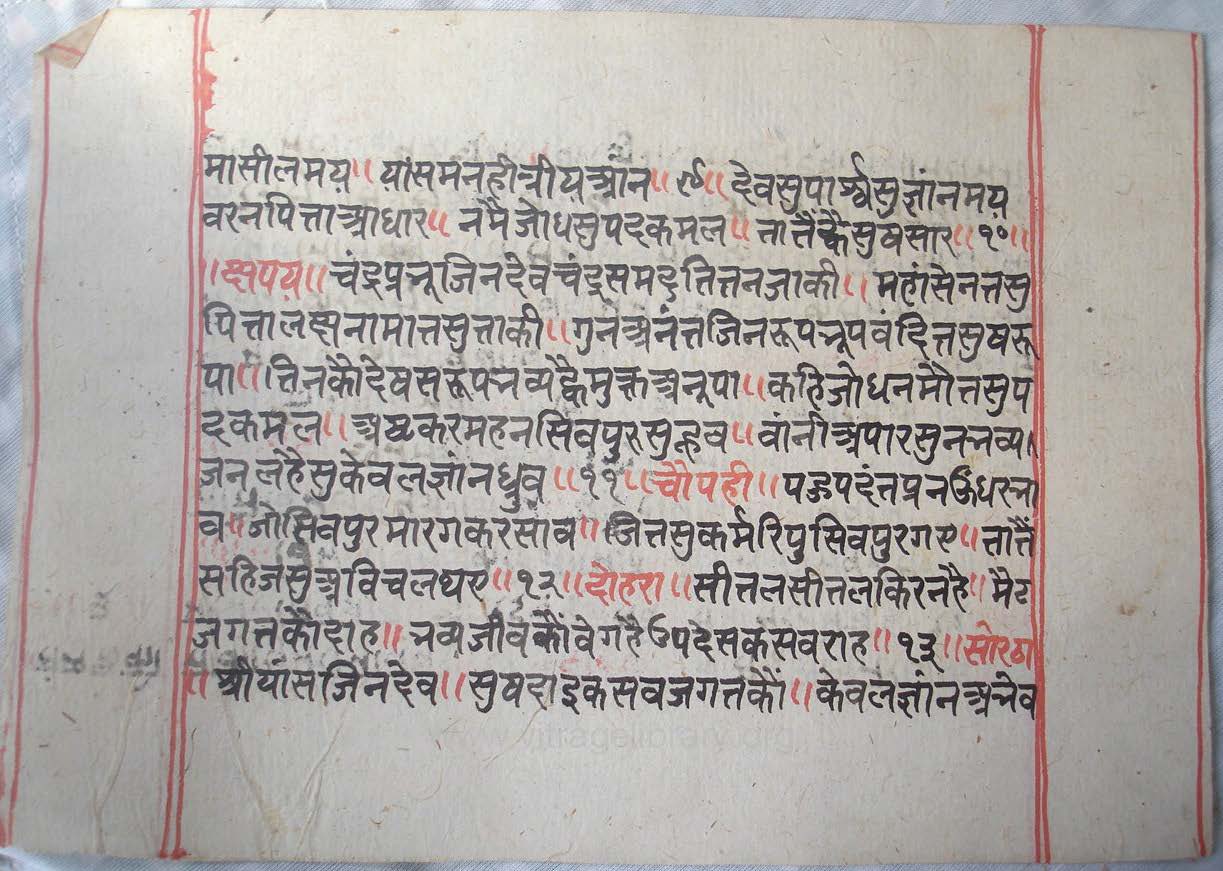 मासीलमय॥ यांसमनहीत्रीयआंन॥९॥ देवसुपार्श्वसुज्ञांनमय
वरनपित्ताआधार॥ नमैजोधसुपदकमल॥ तातैंह्वैसुषसार॥१०॥
॥छपय॥ चंद्रप्रभूजिनदेवचंद्रसमदुतितनजाकी॥ महांसेनतसु
पितालछनामातसुताकी॥ गुनअनंतजिनरूपभूपवंदितसुषरू
पा॥ तिनकौदेषसरूपभव्यह्वैमुक्तअनूपा॥ कहिजोधनमौतसुप
दकमल॥ अष्टकरमहनसिवपुरसुहुव॥ वांनीअपारसुनभव्य।
जनलहैसुकेवलज्ञांनध्रुव॥११॥ चौपही॥ पहुपदंतप्रनऊधरभा
व॥ जोसिवपुरमारगकरसाव॥ जितसुकर्मरिपुसिवपुरगए॥ तातैं
सहिजसुअविचलथए॥१२॥ दोहरा॥ सीतलसीतलकिरनहै॥ मैट
जगतकौदाह॥ भव्यजीवकौंवेगहैउपदेसकसवराह॥१३॥ सोरठा
॥ श्रीयांसजिनदेव॥ सुषदाइकसवजगतकौं॥ केवलज्ञांनअभेव
www.vitragelibrary.org